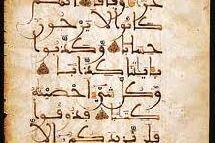 وفاقا انهم
كانوا لا يرجون
حسابا وكذبوا
بايتنا كذابا
وكل شيء احصينه
كتبا فذوقوا
فلن نزيدكم الا